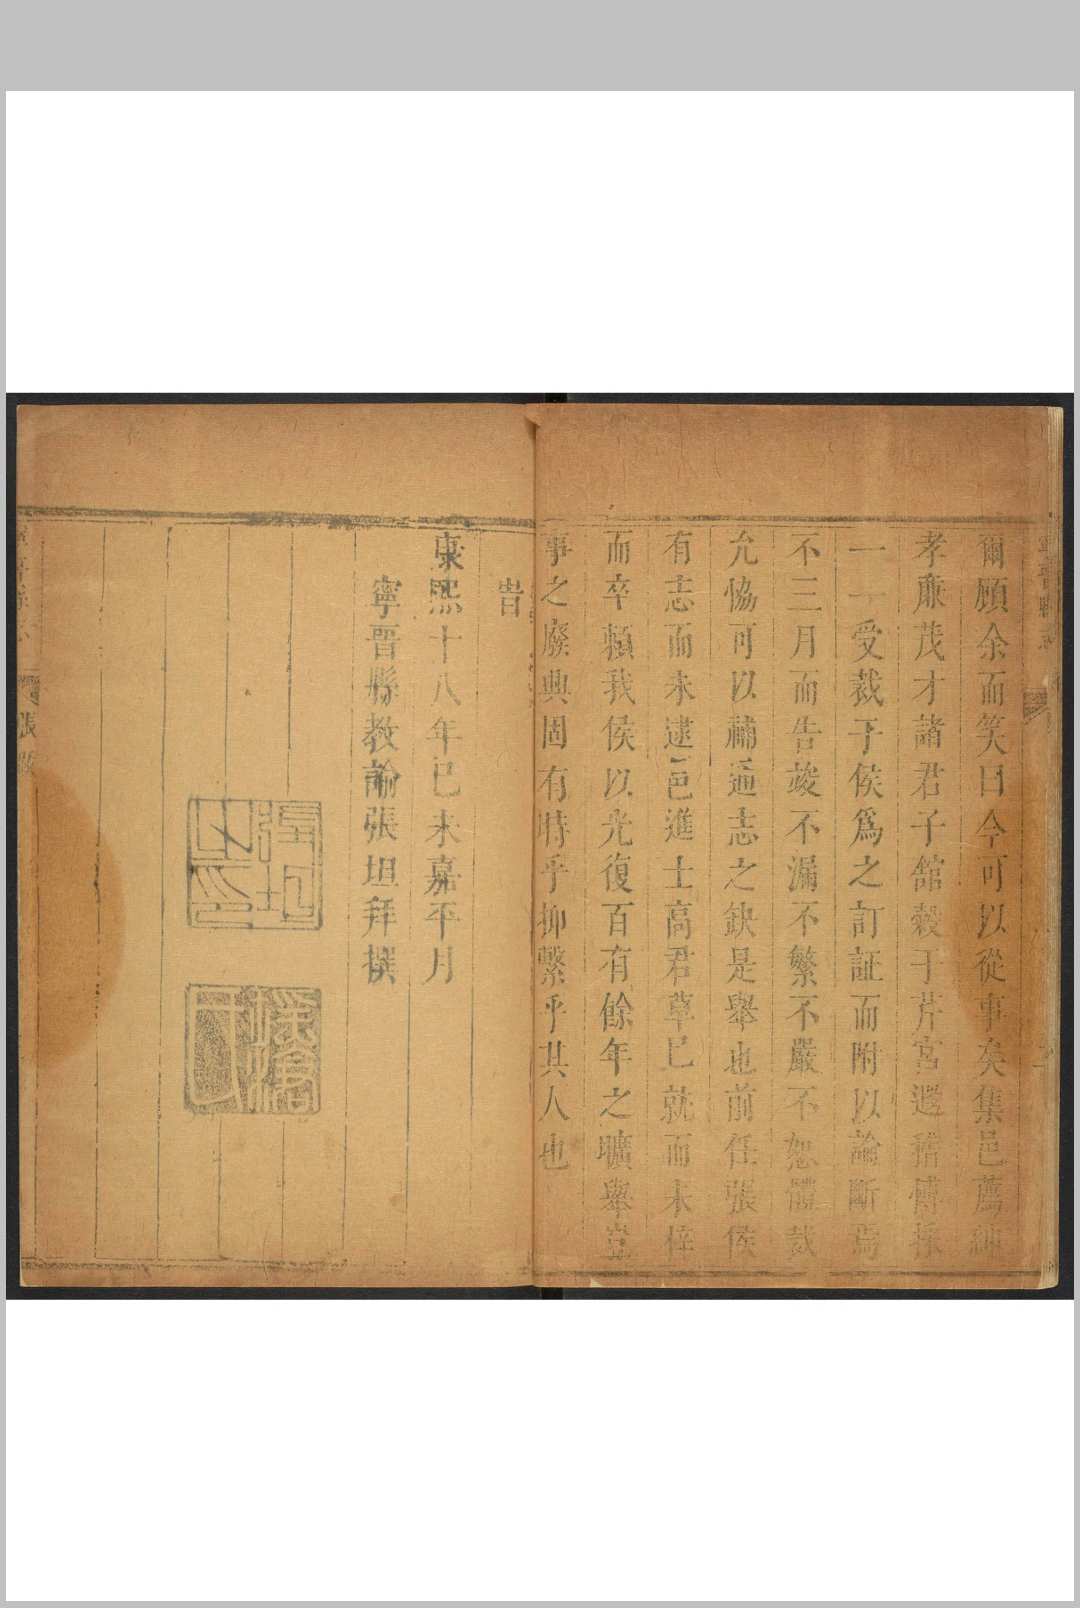 爾顧余而笑曰今可以從事矣集邑薦紳
孝廉茂才諸君子館穀于芹宮遐稽博採
一一受裁于侯爲之訂証而附以論斷焉
不三月而告竣不漏不繁不嚴不恕體裁
允恊可以補通志之缺是舉也前任張侯
有志而未逮邑進士高君草已就而未梓
而卒賴我侯以光復百有餘年之曠舉豈
事之廢興固有時乎抑繫乎其人也
旹
康熙十八年己未嘉平月
寧晉縣教諭張坦拜撰
張坦之印